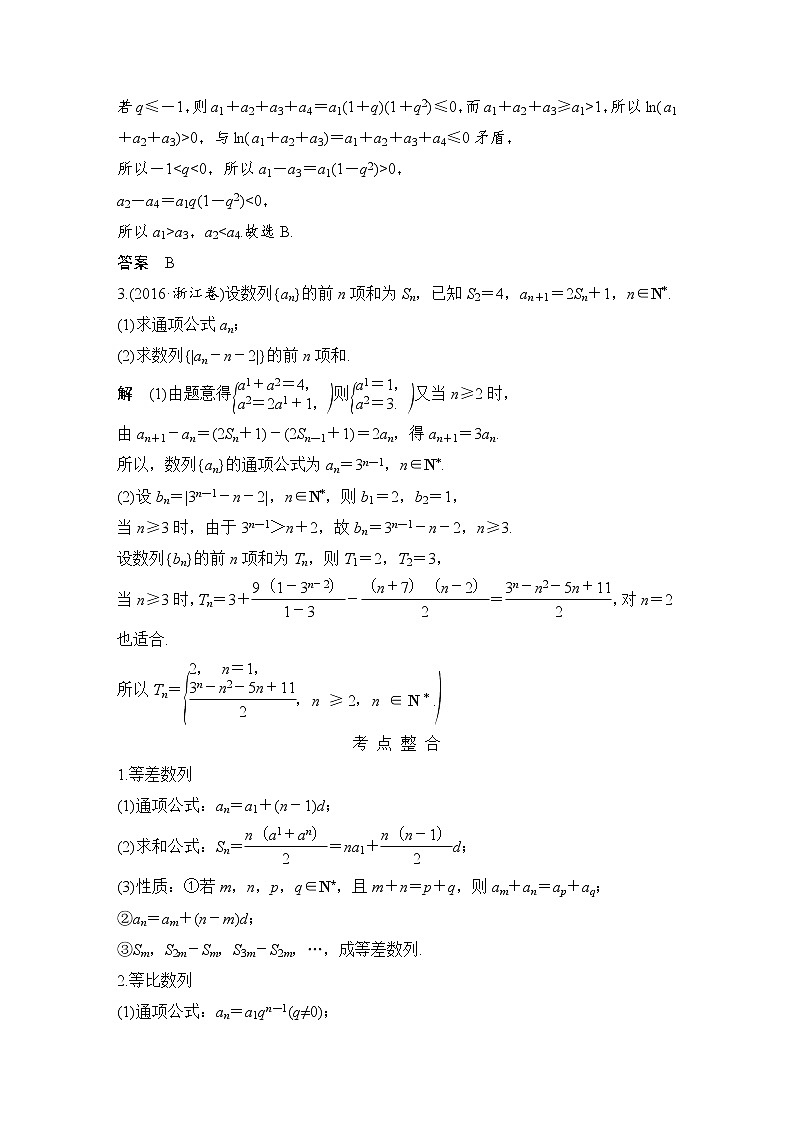 若q≤－1，则a₁＋a₂＋a₃＋a₄＝a₁(1＋q)(1＋q²)≤0，而a₁＋a₂＋a₃≥a₁>1，所以ln(a₁
＋a₂＋a₃)>0，与ln(a₁＋a₂＋a₃)＝a₁＋a₂＋a₃＋a₄≤0矛盾，
所以－1<q<0，所以a₁－a₃＝a₁(1－q²)>0，
a₂－a₄＝a₁q(1－q²)<0，
所以a₁>a₃，a₂<a₄.故选B.
答案　B
3.(2016·浙江卷)设数列{aₙ}的前n项和为Sₙ，已知S₂＝4，aₙ₊₁＝2Sₙ＋1，n∈N*.
(1)求通项公式aₙ；
(2)求数列{|aₙ－n－2|}的前n项和.
解　(1)由题意得{a1＋a2＝4，a2＝2a1＋1，)则{a1＝1，a2＝3.)又当n≥2时，
由aₙ₊₁－aₙ＝(2Sₙ＋1)－(2Sₙ₋₁＋1)＝2aₙ，得aₙ₊₁＝3aₙ.
所以，数列{aₙ}的通项公式为aₙ＝3ⁿ⁻¹，n∈N*.
(2)设bₙ＝|3ⁿ⁻¹－n－2|，n∈N*，则b₁＝2，b₂＝1，
当n≥3时，由于3ⁿ⁻¹＞n＋2，故bₙ＝3ⁿ⁻¹－n－2，n≥3.
设数列{bₙ}的前n项和为Tₙ，则T₁＝2，T₂＝3，
当n≥3时，Tₙ＝3＋9（1－3ⁿ⁻²）/1－3－（n＋7）（n－2）/2＝3ⁿ－n²－5n＋11/2，对n＝2
也适合.
所以Tₙ＝{2，　n＝1，3ⁿ－n²－5n＋11/2，n ≥2，n ∈N*.)
考 点 整 合
1.等差数列
(1)通项公式：aₙ＝a₁＋(n－1)d；
(2)求和公式：Sₙ＝n（a1＋an）/2＝na₁＋n（n－1）/2d；
(3)性质：①若m，n，p，q∈N*，且m＋n＝p＋q，则aₘ＋aₙ＝aₚ＋a_q；
②aₙ＝aₘ＋(n－m)d；
③Sₘ，S₂ₘ－Sₘ，S₃ₘ－S₂ₘ，…，成等差数列.
2.等比数列
(1)通项公式：aₙ＝a₁qⁿ⁻¹(q≠0)；